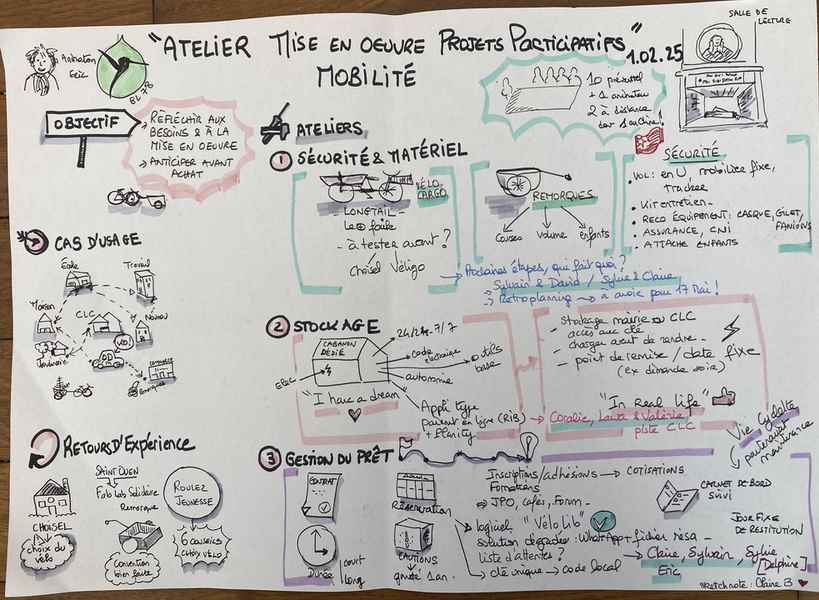 "ATELIER MISE EN OEUVRE PROJETS PARTICIPATIFS"
MOBILITÉ
1.02.25
SALLE DE
LECTURE
Animation
Eric
10 présentiel
+ 1 animateur
2 à distance
OBJECTIF
→ RÉFLÉCHIR AUX
BESOINS & À LA
MISE EN OEUVRE
→ ANTICIPER AVANT
ACHAT
ATELIERS
① SÉCURITÉ & MATÉRIEL
VÉLO
CARGO
- LONGTAIL -
Le ⊕ facile
- à tester avant ?
choisel Véligo
REMORQUES
Courses
Volume
enfants
SÉCURITÉ
• VOL: en U, mobilier fixe,
tracker
• Kit entretien -
• RECO ÉQUIPEMENT: CASQUE, GILET,
FANIONS
• ASSURANCE, CNI
• ATTACHE ENFANTS
→ Prochaines étapes, qui fait quoi ?
→ Sylvain & David / Sylvie & Claire
→ Retroplanning → à avoir pour 17 Mai !
CAS D'USAGE
École
Travail
Maison
CLC
COMMERCE
Remorques
② STOCKAGE
CABANON
DÉDIÉ
Elec
24/24 - 7/7
code
électronique
outils
base
autonomie
"I have a dream"
Appli type
paiement en ligne (RIB)
+ Planity
- Stockage mairie ou CLC
accès avec clé
- charger avant de rendre -
- point de remise / date fixe
(ex dimanche soir)
"In Real life"
Coralie, Laura & Valérie
piste CLC
Vie Cyclette
partenariat
maintenance
RETOURS D'EXPÉRIENCE
CHOISEL
choix du
vélo
SAINT OUEN
Fab Lab Solidaire
Remorque
Convention
bien faite
ROULEZ
JEUNESSE
6 CONSEILS
CHOIX VÉLO
③ GESTION DU PRÊT
CONTRAT
Durée
court
long
Réservation
CAUTIONS
gratuité 1 an.
Inscriptions/adhésions → COTISATIONS
Formations
→ JPO, cafés, Forum -
→ logiciel "Vélo Lib"
solution dégradée: WhatsApp + fichier résa -
liste d'attentes ?
→ clé unique → code local
CARNET DE BORD
SUIVI
JOUR FIXE
DE RESTITUTION
→ Claire, Sylvain, Sylvie
Eric
[Delphine]
sketchnote: Claire B